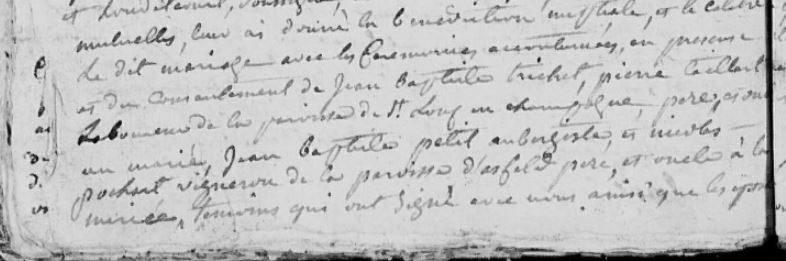 et
mutuelles, leur ai donné la bénédiction nuptiale, et
Le dit mariage avec les Ceremonies accoutumées, en presence
et du Consentement de Jean Baptiste trichet, pierre taillart
Laboureur de la paroisse de St Loup en champagne, pere, et
au marié, Jean Baptiste petit aubergiste, et nicolas
pochart vigneron de la paroisse d'asfeld pere, et oncle à la
mariée, temoins qui ont signé avec nous ainsi que les